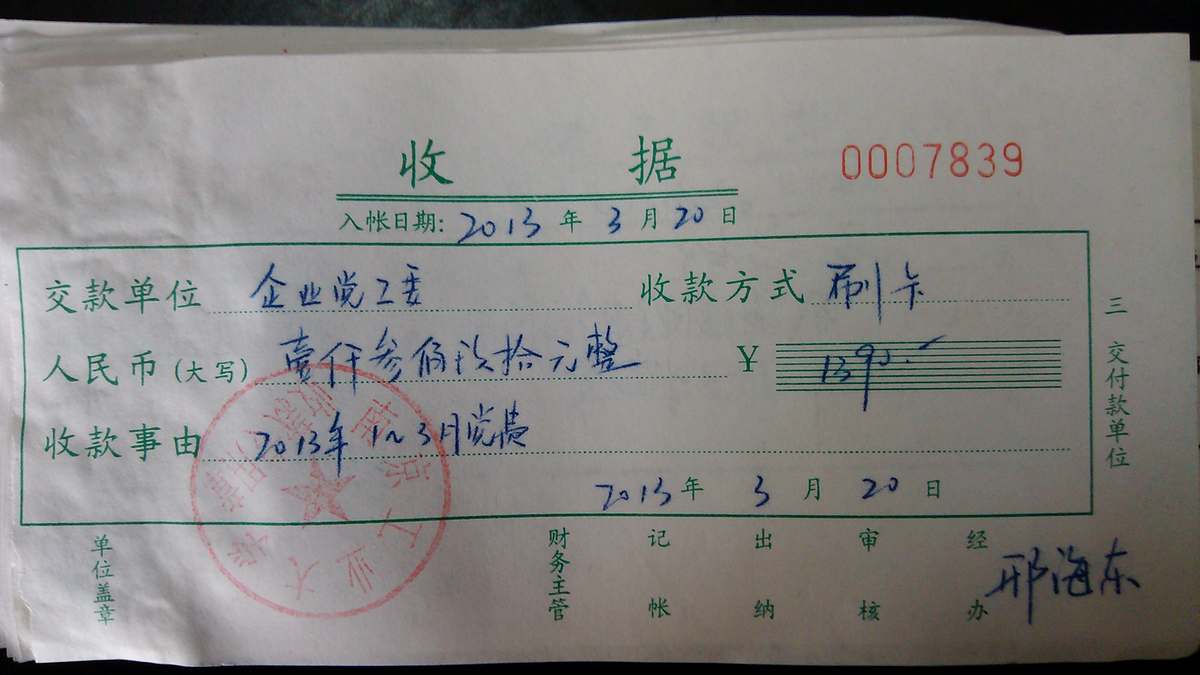 收 据
0007839
入帐日期: 2013 年 3 月 20 日
交款单位 企业党工委 收款方式 刷卡
人民币(大写) 壹仟叁佰玖拾元整 ¥ 1390.-
收款事由 2013年1~3月党费
2013 年 3 月 20 日
三 交付款单位
单位盖章 财务主管 记帐 出纳 审核 经办 邢海东
京工业大学